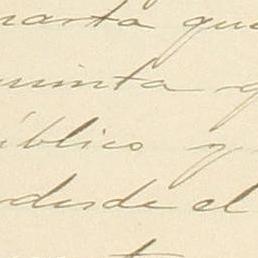 marta que
quinta q
úblico y
desde el